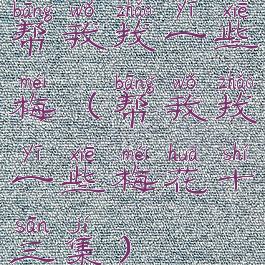 bāng wǒ zhǎo yī xiē
帮我找一些
méi bāng wǒ zhǎo
梅（帮我找
yī xiē méi huā shí
一些梅花十
sān jí
三集）